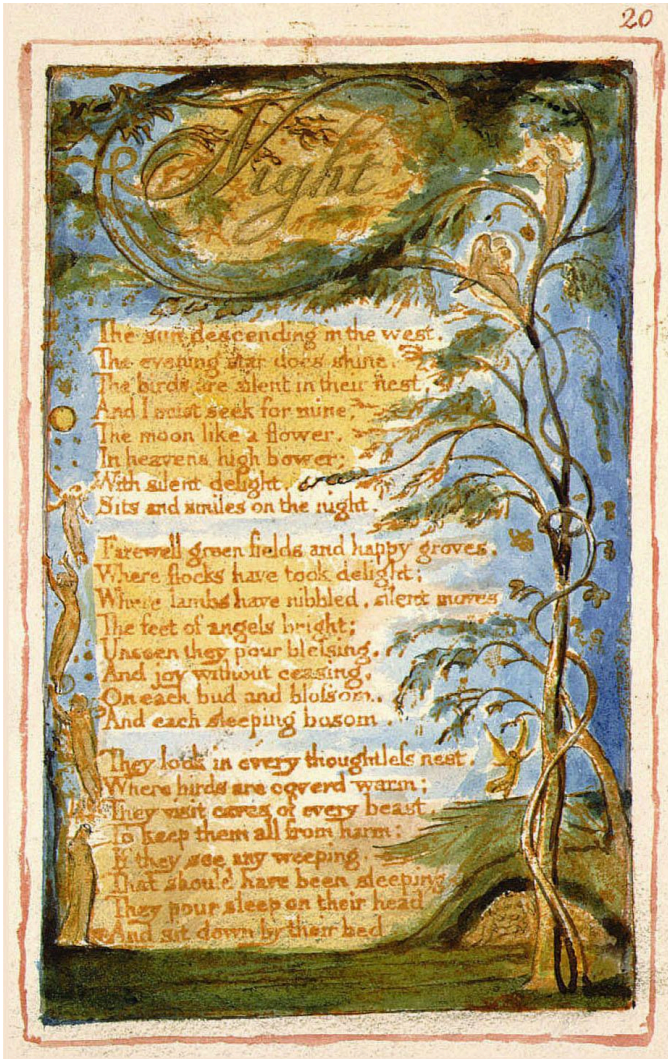 20
Night
The sun descending in the west.
The evening star does shine.
The birds are silent in their nest,
And I must seek for mine,
The moon like a flower,
In heavens high bower;
With silent delight,
Sits and smiles on the night.
Farewell green fields and happy groves,
Where flocks have took delight;
Where lambs have nibbled, silent moves
The feet of angels bright;
Unseen they pour blessing,
And joy without ceasing,
On each bud and blossom,
And each sleeping bosom.
They look in every thoughtless nest,
Where birds are coverd warm;
They visit caves of every beast,
To keep them all from harm:
If they see any weeping,
That should have been sleeping
They pour sleep on their head
And sit down by their bed